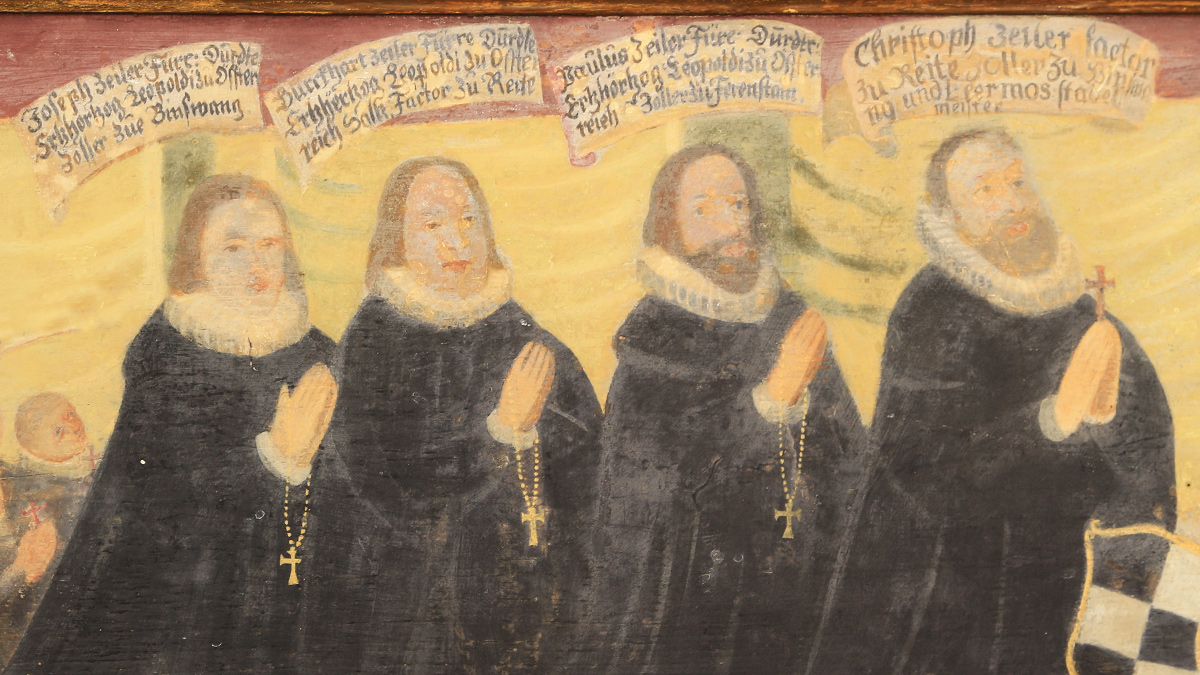 Joseph Zeiler Fürs: Dürdte
Ertzhertzog Leopoldi zu Osster
Zoller Zue Binswang
Burckhart Zeiler Fürre Dürdle
Ertzhertzog Leopoldi zu Osster
reich Saltz Factor zu Reite
Paulus Zeiler Fürs: Dürdte:
Ertzhörtzog Leopoldi zu Osster
reich Zoller zu Fernstain
Christoph Zeiler factor
zu Reite Zoller zu Binßwa
ng und
meister